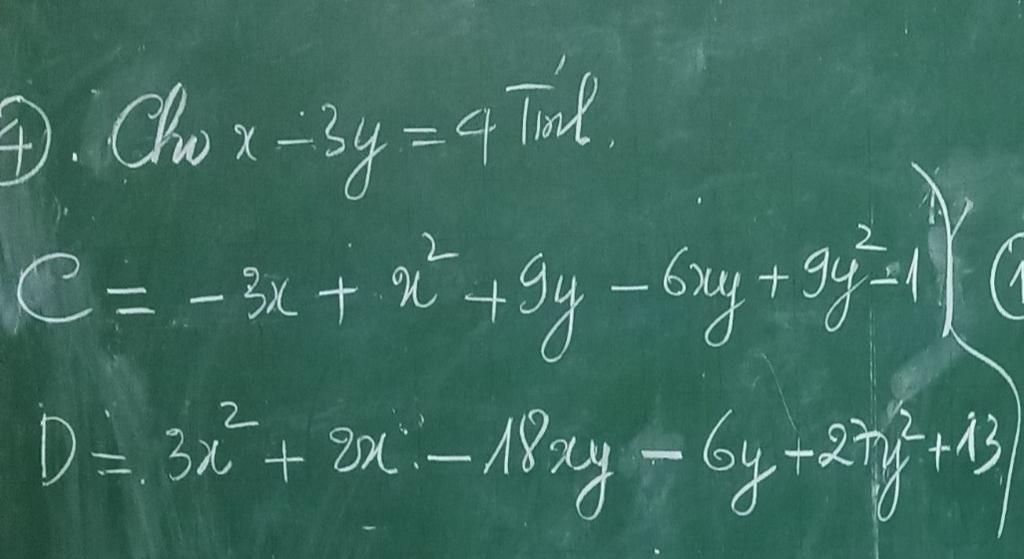 ④. Cho x - 3y = 4 Tính.
C = - 3x + x² + 9y - 6xy + 9y² - 1
D = 3x² + 2x - 18xy - 6y + 27y² + 13